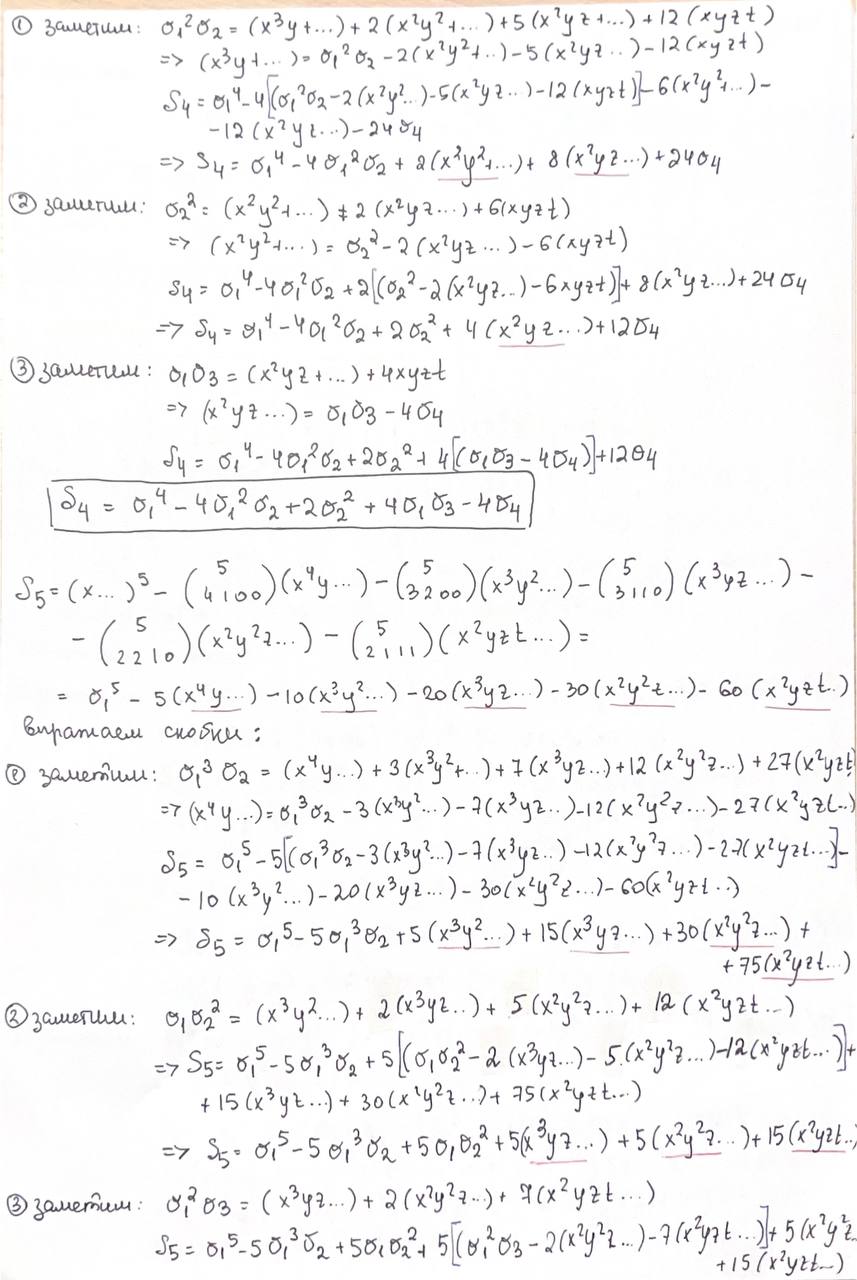 ① заметим: σ₁²σ₂ = (x³y+...) + 2(x²y²+...) + 5(x²yz+...) + 12(xyzt)
=> (x³y+...) = σ₁²σ₂ - 2(x²y²+..) - 5(x²yz..) - 12(xyzt)
S₄ = σ₁⁴ - 4[(σ₁²σ₂ - 2(x²y²..) - 5(x²yz..) - 12(xyzt)] - 6(x²y²+...) -
- 12(x²yz...) - 24σ₄
=> S₄ = σ₁⁴ - 4σ₁²σ₂ + 2(x²y²+...) + 8(x²yz...) + 24σ₄
② заметим: σ₂² = (x²y²+...) + 2(x²yz...) + 6(xyzt)
=> (x²y²+...) = σ₂² - 2(x²yz...) - 6(xyzt)
S₄ = σ₁⁴ - 4σ₁²σ₂ + 2[(σ₂² - 2(x²yz..) - 6xyzt)] + 8(x²yz...) + 24σ₄
=> S₄ = σ₁⁴ - 4σ₁²σ₂ + 2σ₂² + 4(x²yz...) + 12σ₄
③ заметим: σ₁σ₃ = (x²yz+...) + 4xyzt
=> (x²yz...) = σ₁σ₃ - 4σ₄
S₄ = σ₁⁴ - 4σ₁²σ₂ + 2σ₂² + 4[(σ₁σ₃ - 4σ₄)] + 12σ₄
S₄ = σ₁⁴ - 4σ₁²σ₂ + 2σ₂² + 4σ₁σ₃ - 4σ₄
S₅ = (x...)⁵ - (5 4100)(x⁴y...) - (5 3200)(x³y²...) - (5 3110)(x³yz...) -
- (5 2210)(x²y²z...) - (5 2111)(x²yzt...) =
= σ₁⁵ - 5(x⁴y...) - 10(x³y²...) - 20(x³yz...) - 30(x²y²z...) - 60(x²yzt..)
выражаем скобки:
① заметим: σ₁³σ₂ = (x⁴y...) + 3(x³y²+...) + 7(x³yz...) + 12(x²y²z...) + 27(x²yzt
=> (x⁴y...) = σ₁³σ₂ - 3(x³y²...) - 7(x³yz..) - 12(x²y²z...) - 27(x²yzt..)
S₅ = σ₁⁵ - 5[(σ₁³σ₂ - 3(x³y²..) - 7(x³yz..) - 12(x²y²z...) - 27(x²yzt...)] -
- 10(x³y²...) - 20(x³yz...) - 30(x²y²z...) - 60(x²yzt..)
=> S₅ = σ₁⁵ - 5σ₁³σ₂ + 5(x³y²...) + 15(x³yz...) + 30(x²y²z...) +
+ 75(x²yzt...)
② заметим: σ₁σ₂² = (x³y²...) + 2(x³yz..) + 5(x²y²z...) + 12(x²yzt...)
=> S₅ = σ₁⁵ - 5σ₁³σ₂ + 5[(σ₁σ₂² - 2(x³yz...) - 5(x²y²z...) - 12(x²yzt...)] +
+ 15(x³yz...) + 30(x²y²z..) + 75(x²yzt...)
=> S₅ = σ₁⁵ - 5σ₁³σ₂ + 5σ₁σ₂² + 5(x³yz...) + 5(x²y²z...) + 15(x²yzt..
③ заметим: σ₁²σ₃ = (x³yz...) + 2(x²y²z...) + 7(x²yzt...)
S₅ = σ₁⁵ - 5σ₁³σ₂ + 5σ₁σ₂² + 5[(σ₁²σ₃ - 2(x²y²z...) - 7(x²yzt...)] + 5(x²y²z..
+ 15(x²yzt...)